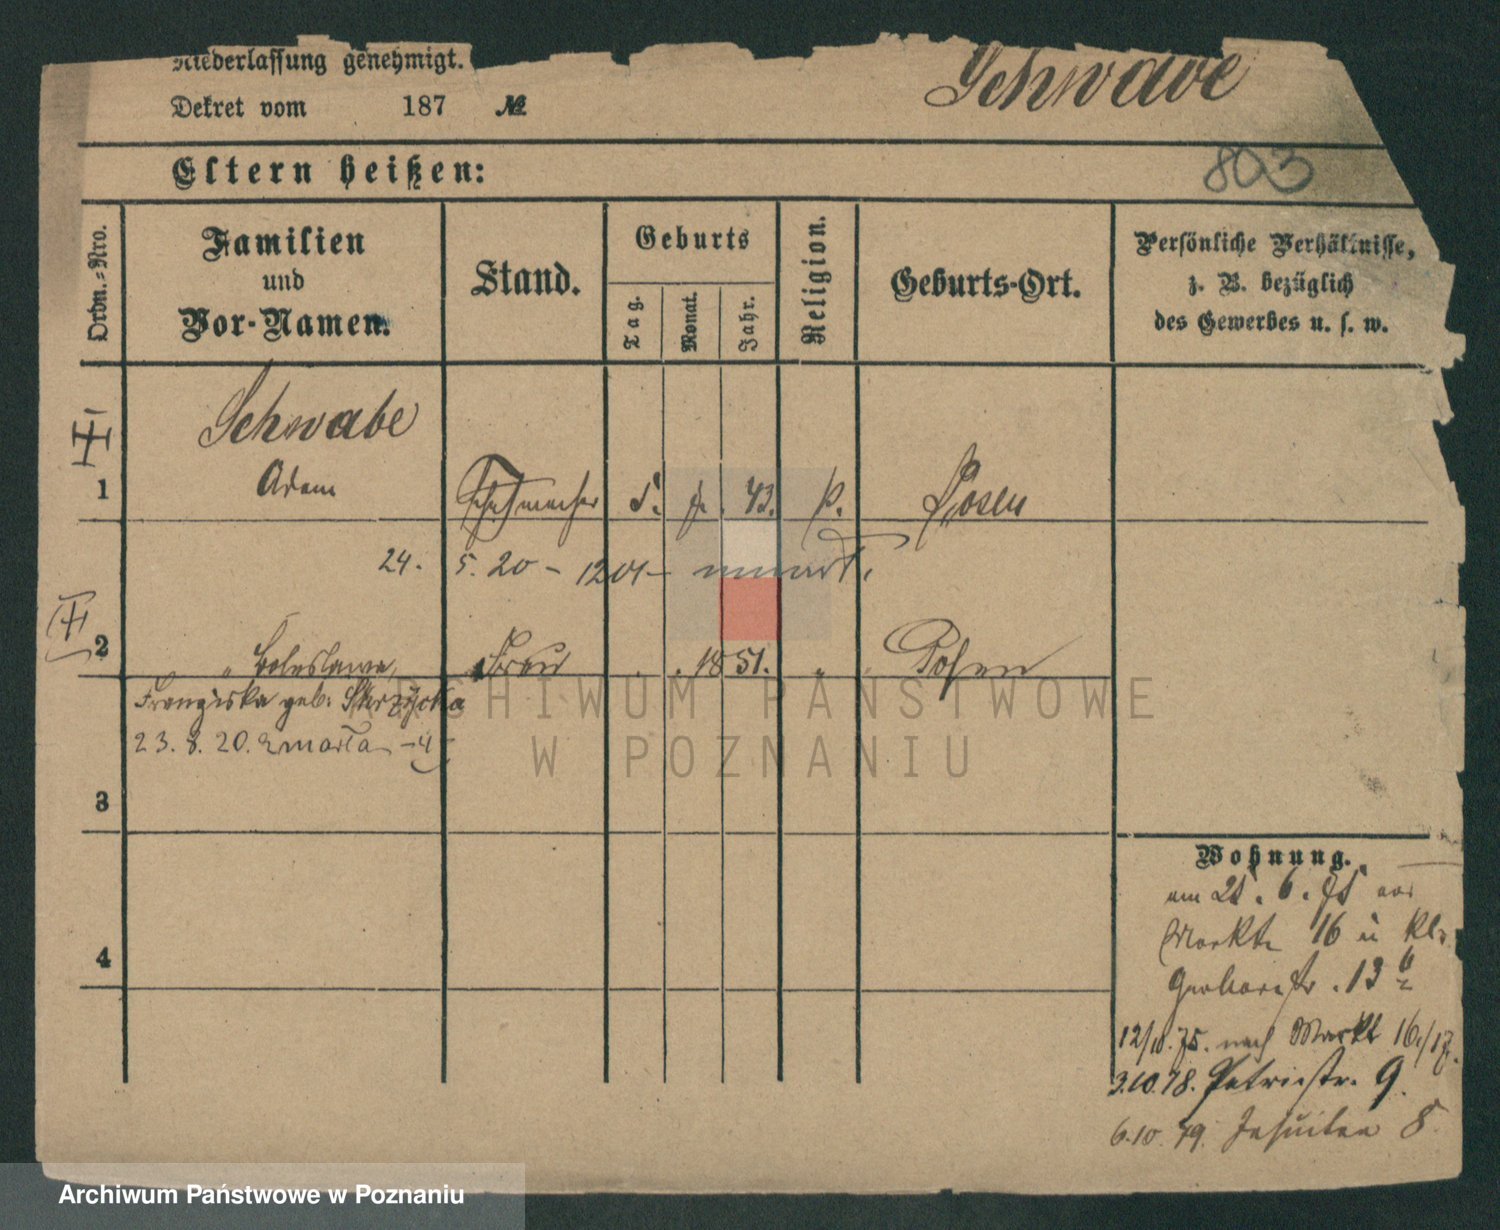 Niederlassung genehmigt.
Dekret vom 187 №
Schwabe
803
Eltern heißen:
Ordn.-Nro.
Familien
und
Vor-Namen.
Stand.
Geburts
Tag.
Monat.
Jahr.
Religion.
Geburts-Ort.
Persönliche Verhältnisse,
z. B. bezüglich
des Gewerbes u. s. w.
Schwabe
1 Adam 5. 43. Posen
24. 5. 20 - 1201 - umart.
2 " Boleslawa, Frau 1851. " Posen
Franziska geb. Skrzycka
23. 8. 20. zmarła
3
4
Wohnung.
am 25. 6. 75
Markt 16 u kl.
Gerberstr. 13
12/10. 75. nach Markt 16/17.
3.10.78. 9.
6.10.79. Jesuiten 8.
ARCHIWUM PAŃSTWOWE
W POZNANIU
Archiwum Państwowe w Poznaniu